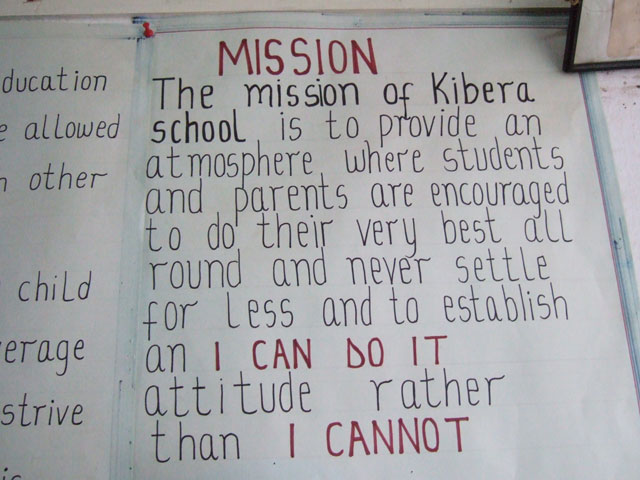 ducation
allowed
other
child
erage
strive
MISSION
The mission of Kibera
school is to provide an
atmosphere where students
and parents are encouraged
to do their very best all
round and never settle
for less and to establish
an I CAN DO IT
attitude rather
than I CANNOT